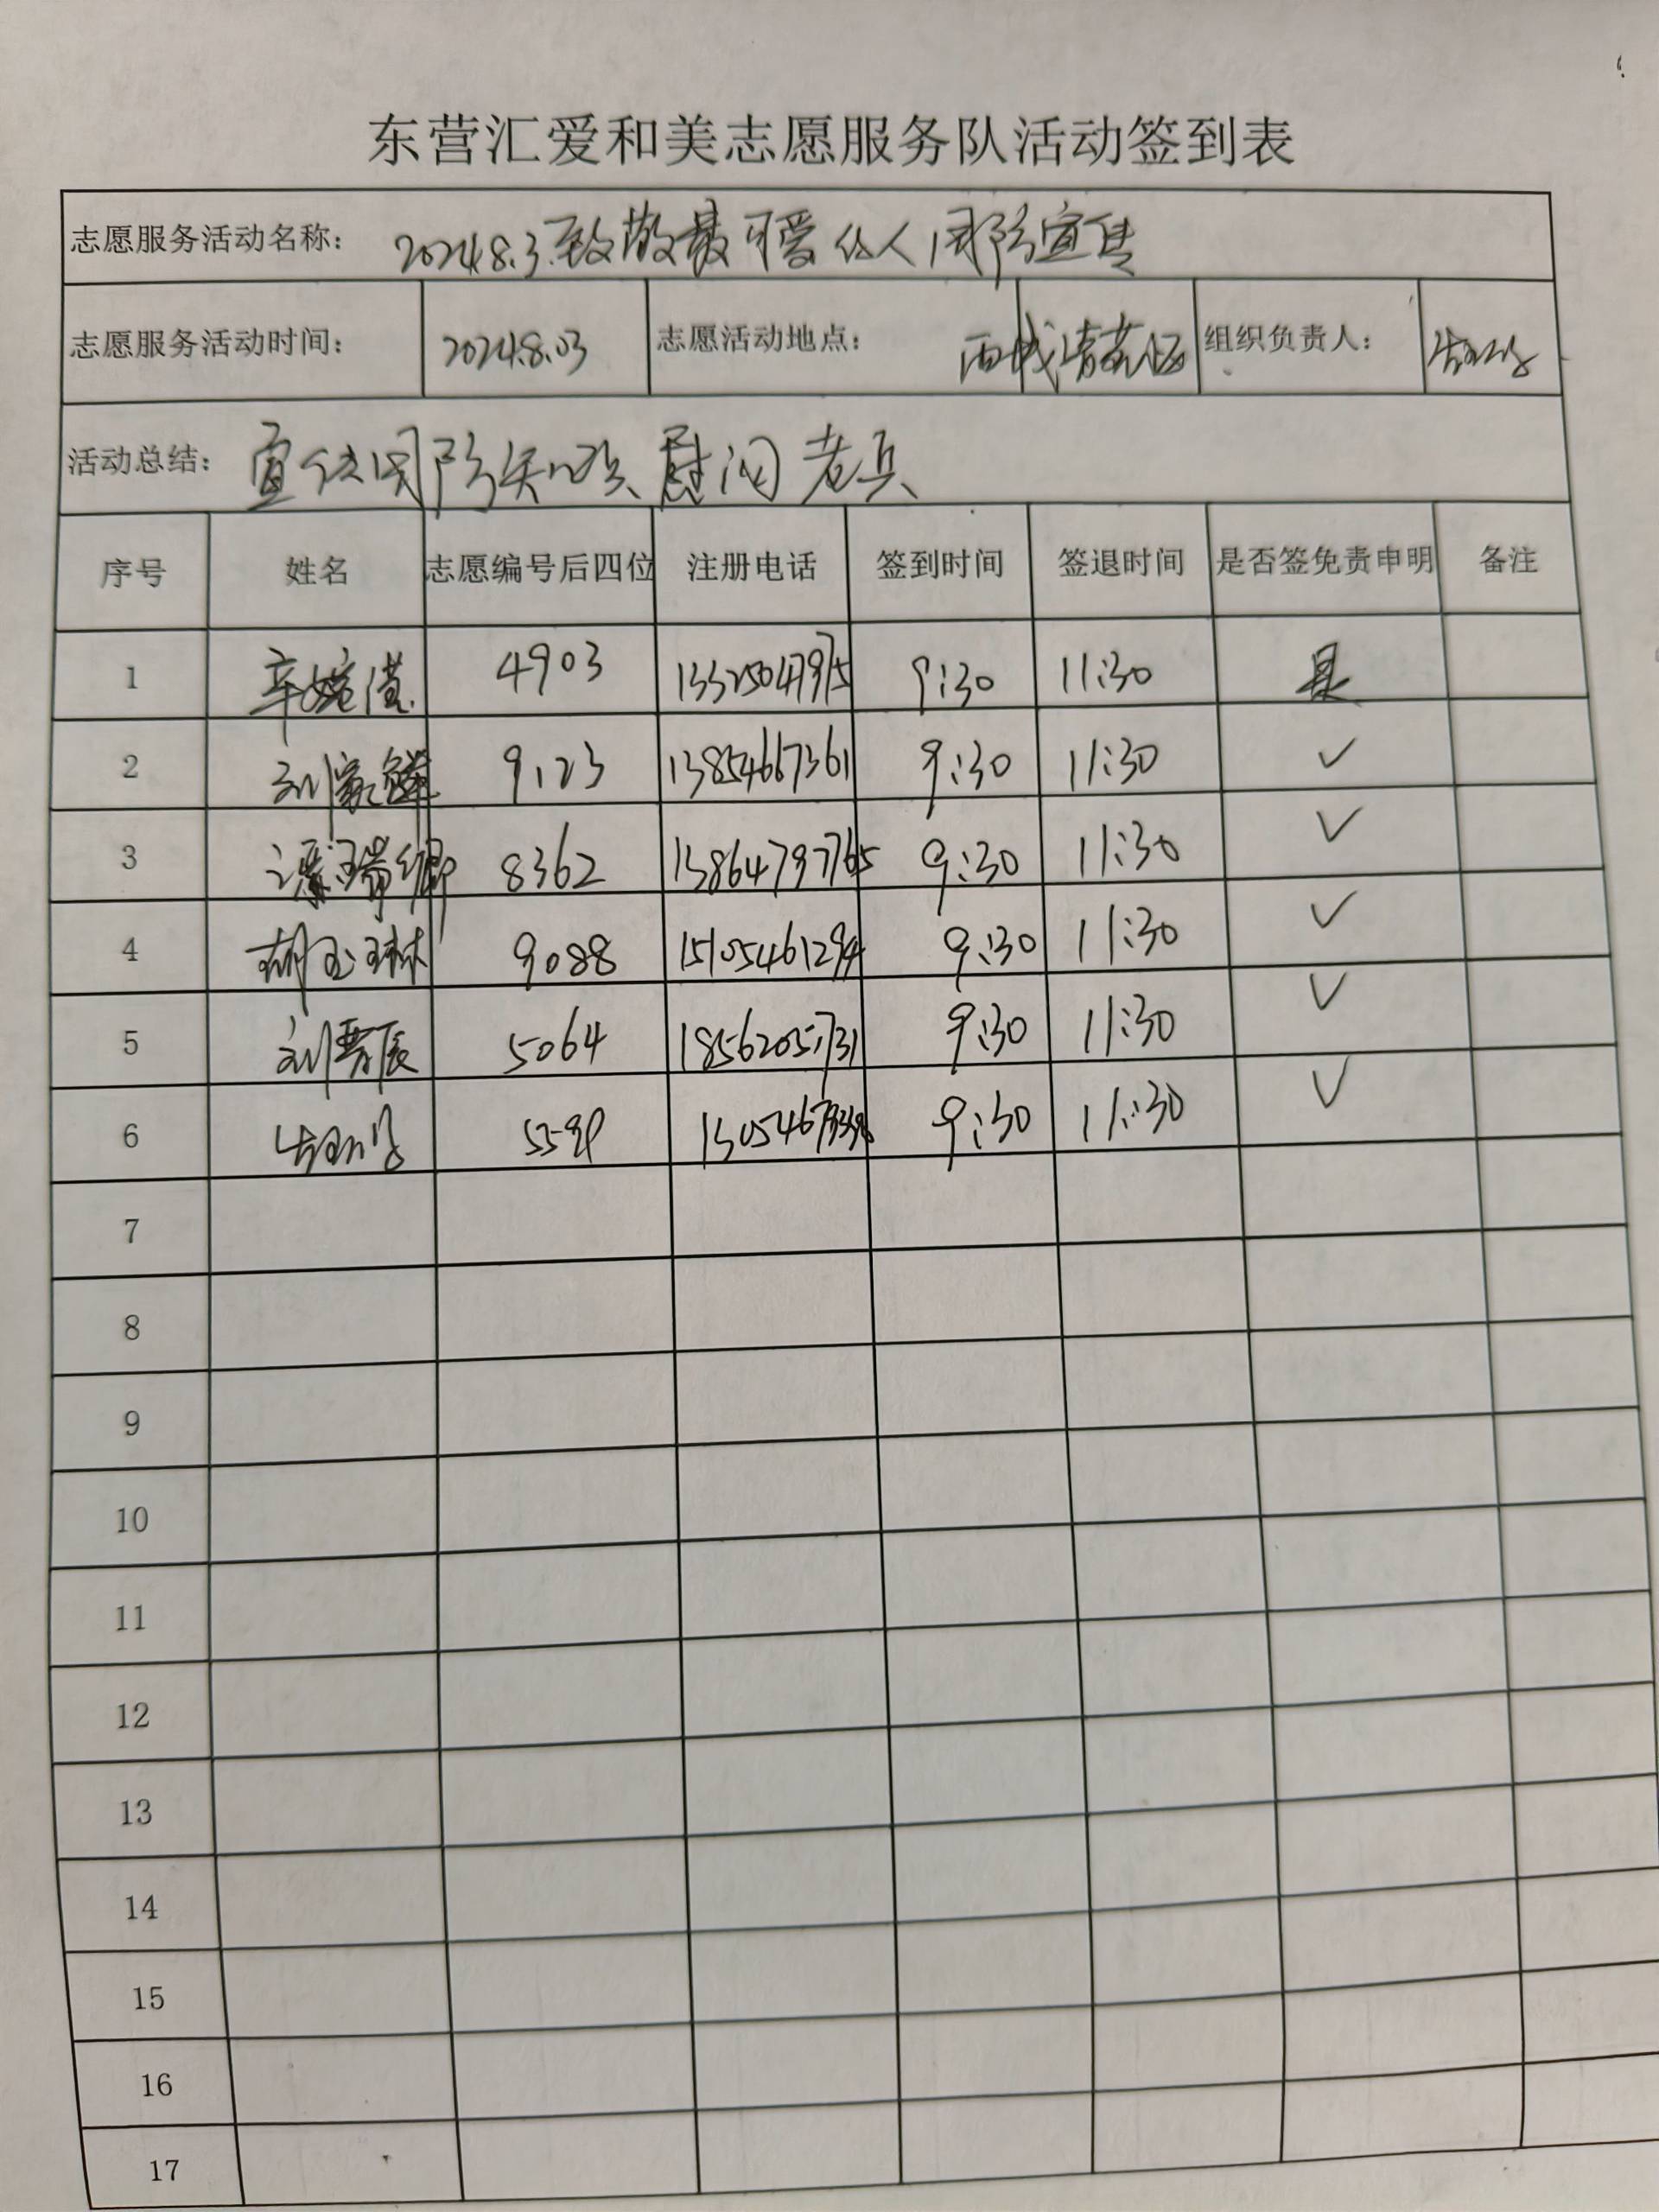 东营汇爱和美志愿服务队活动签到表
志愿服务活动名称： 2024.8.3.致敬最可爱的人国防宣传
志愿服务活动时间： 2024.8.03 志愿活动地点： 西城 组织负责人：
活动总结： 宣传国防知识 慰问老兵
序号 姓名 志愿编号后四位 注册电话 签到时间 签退时间 是否签免责申明 备注
1 辛婉滢 4903 13325047975 9:30 11:30 是
2 刘家 9123 13854667361 9:30 11:30 ✓
3 瑞卿 8362 13864797765 9:30 11:30 ✓
4 胡玉琳 9088 15105461294 9:30 11:30 ✓
5 刘晋辰 5064 18562051731 9:30 11:30 ✓
6 9:30 11:30 ✓
7
8
9
10
11
12
13
14
15
16
17